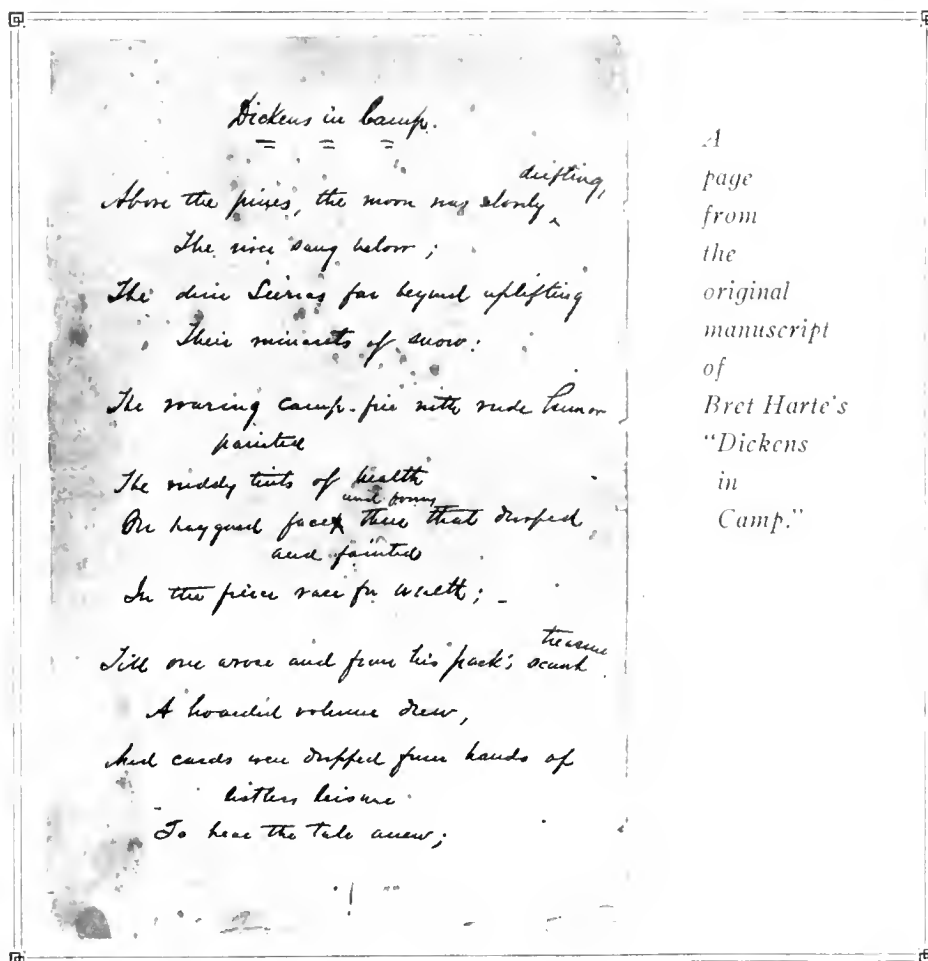 Dickens in Camp.
drifting,
Above the pines, the moon was slowly
The river sang below;
The dim Sierras far beyond uplifting
Their minarets of snow:
The roaring camp-fire with rude humor
painted
The ruddy tints of health
and form
On haggard face that drooped
and fainted
In the fierce race for wealth;
treasure
Till one arose and from his pack's scant
A hoarded volume drew,
And cards were dropped from hands of
listless leisure
To hear the tale anew;
A
page
from
the
original
manuscript
of
Bret Harte's
"Dickens
in
Camp."